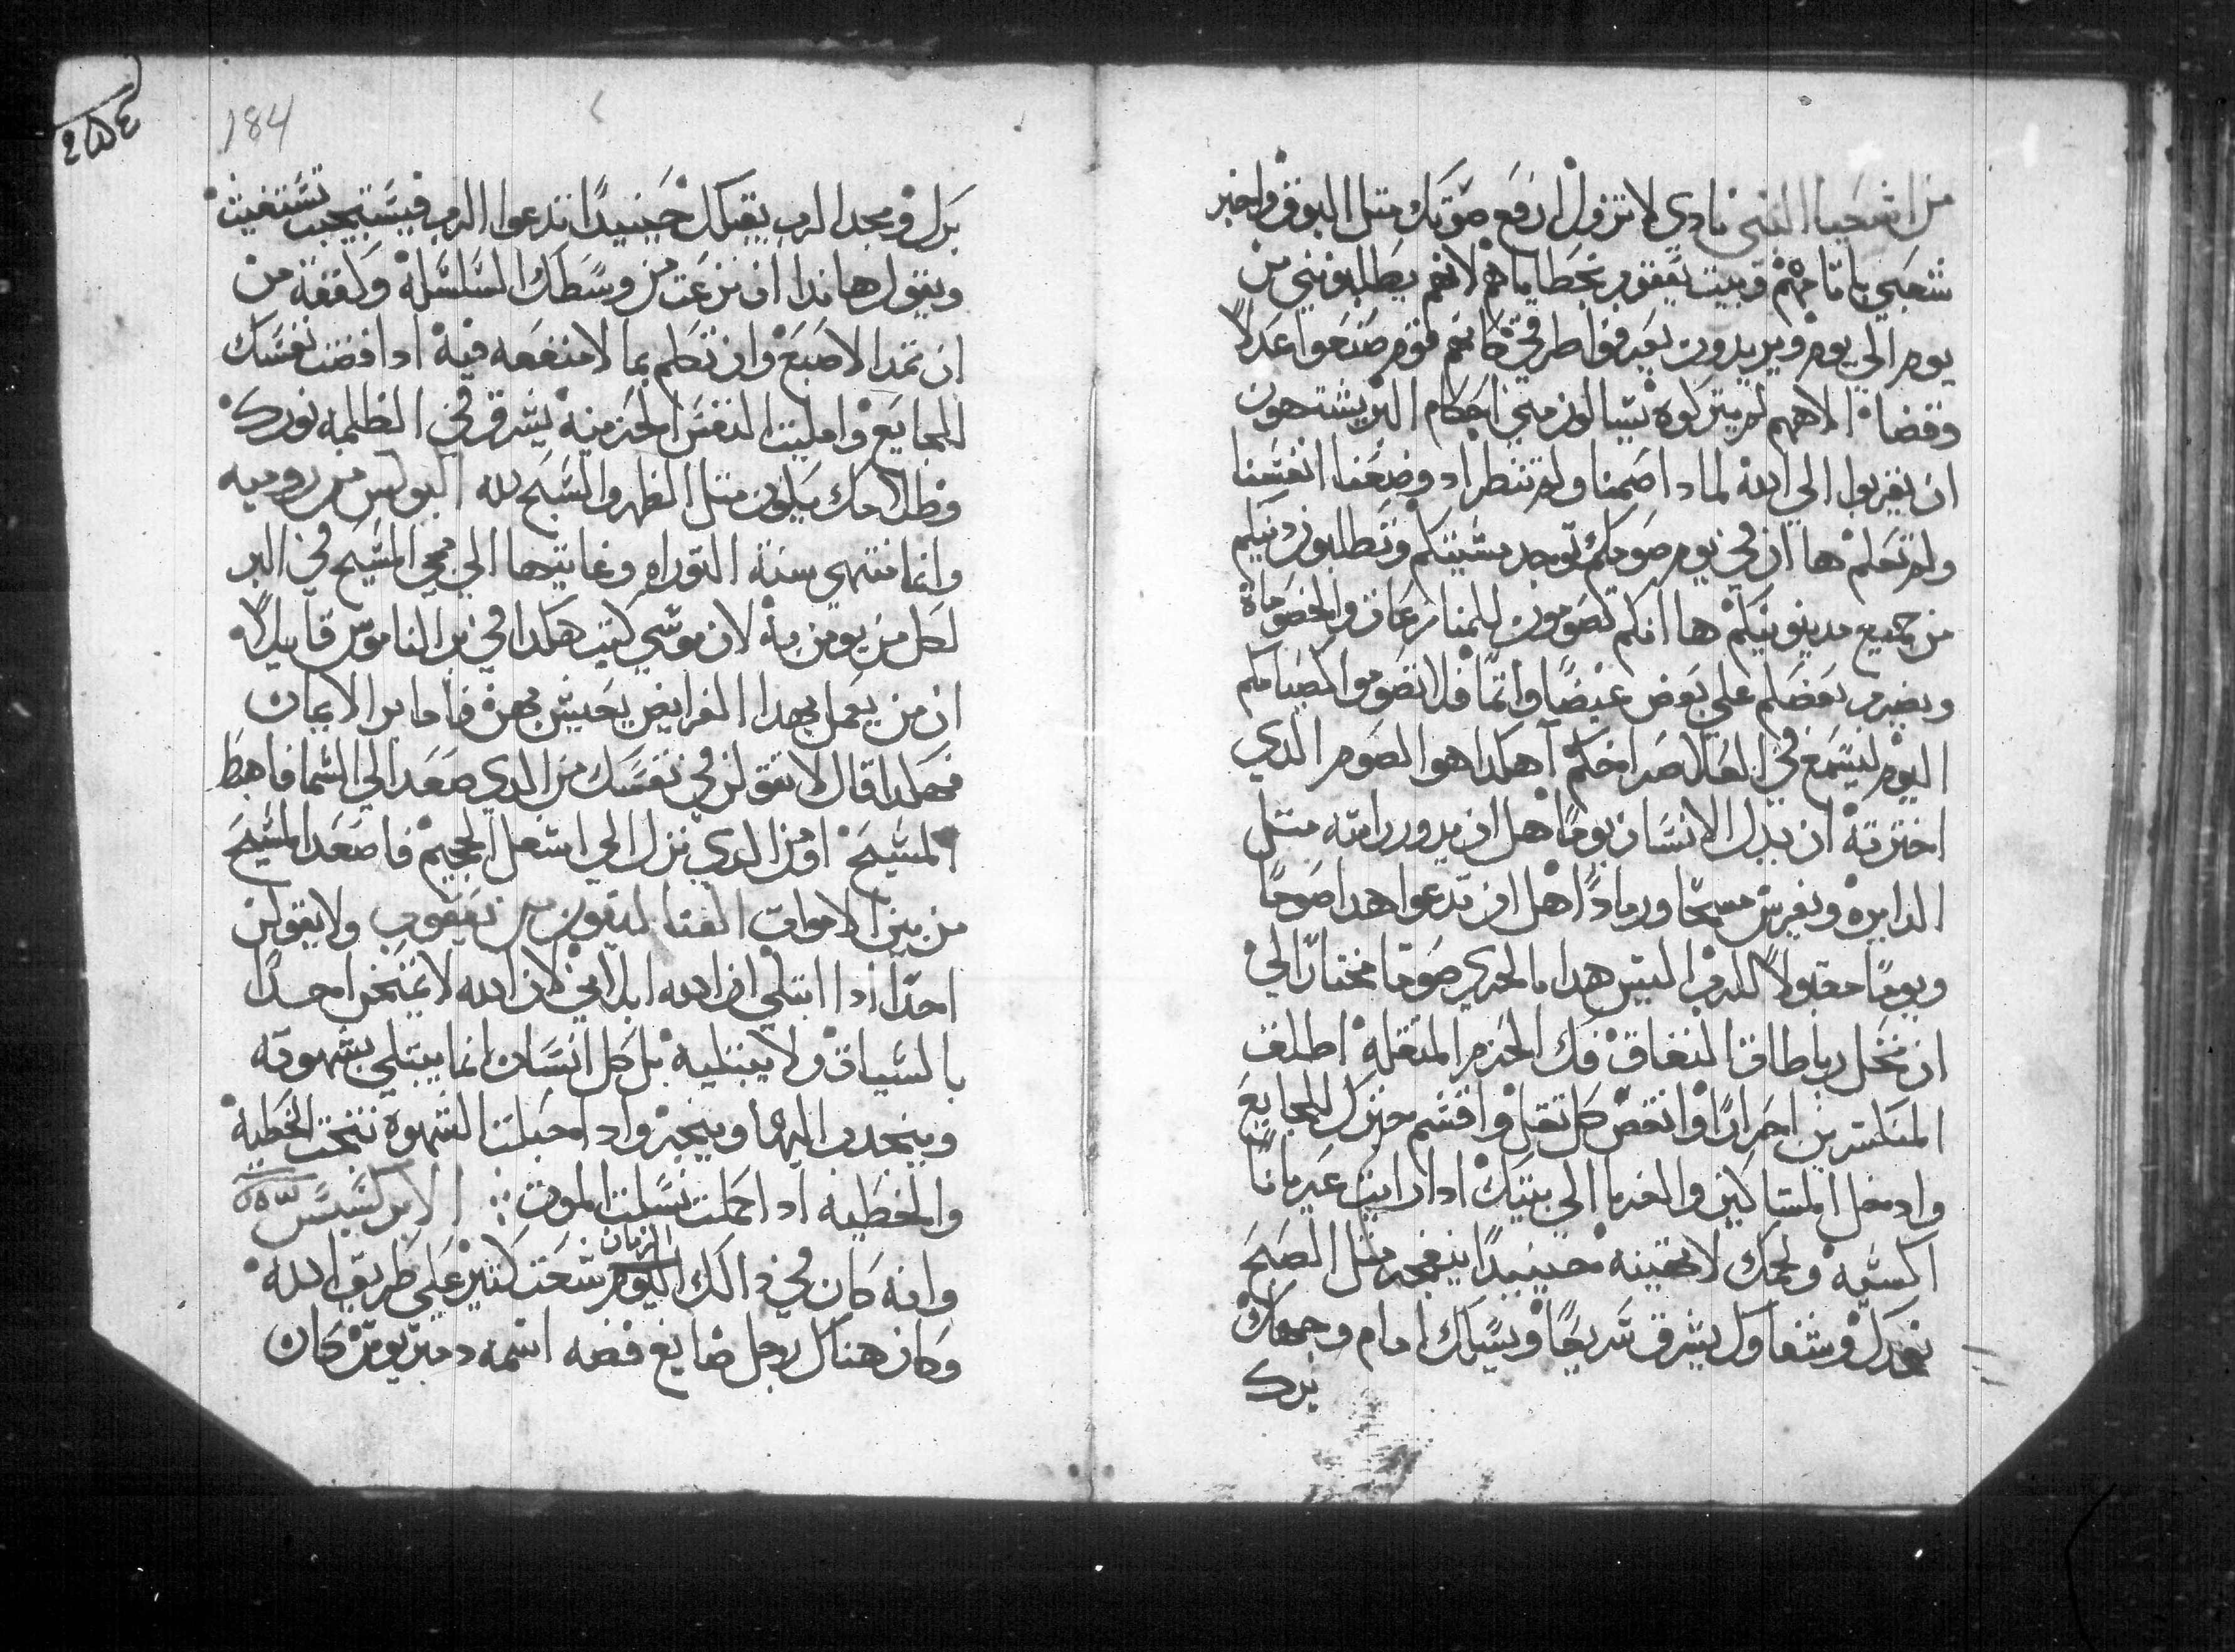 من اشعيا النبى نادي لا تزول ارفع صوتك متل البوق واخبر
شعبي باتامهم وبيت يعقوب بخطاياهم لانهم يطلبونني من
يوم الي يوم ويريدون يعرفوا طرقي كانهم قوم صنعوا عدلاً
وقضاة الاههم لم يتركوه يسالون مني احكام البر يشتهون
ان يقربوا الي الله لمادا صمنا ولم تنظر اد وضعنا انفسنا
ولم تعلم ها ان في يوم صومكم توجد مشيتكم وتطلبون دينكم
من جميع مديونينكم ها انكم تصومون للمنازعات والخصوماة
ويضرب بعضكم علي بعض غيضًا واتمًا فلا تصوموا كصيامكم
اليوم ليسمع في العلا صراخكم اهكدا هو الصوم الدي
اخترته ان يدل الانسان يومًا هل ان يدور رامته متل
الدايره ويفرش مسحًا ورمادًا هل ان تدعوا هدا صومًا
ويومًا مقبولاً للرب اليس هدا بالحري صومًا مختارًا لي
ان تحل رباطات النفاق فك الحزم المتقله اطلق
المنكسرين احرارًا وانقض كل تقل واقسم خبزك للجايع
وادخل المساكين والغربا الي بيتك ادا رايت عريانًا
اكسيه ولحمك لا تهينه حينيدًا ينفجر متل الصبح
نورك وشفاوك يشرق سريعًا ويسلك امام وجهك
برك
184
٢٥٤
برك ومجد الرب يقبلك حينيدًا تدعوا الرب فيستجيب تستغيث
ويقول هاندا ان نزعت من وسطك السلسله وكففة من
ان تمد الاصبع وان تكلم بما لا منفعه فيه ادا فضت نفسك
للجايع وامليت النفس الحزينه يشرق في الظلمه نورك
وظلامك يكون متل الظهر والسبح لله البولس من روميه
وانما منتهي سنة التوراه وغايتها الي مجي المسيح في البر
لكل من يومن به لان موسي كتب هكدا في بر الناموس قايلاً
ان من يعمل بهدا الفرايض يحيش بهن فاما بر الايمان
فهكدا قال لا تقولن في نفسك من الدي صعد الي السما فاهبط
المسيح او من الدي نزل الي اسفل الجحيم فاصعد المسيح
من بين الاموات القتاليقون من يعقوب ولا يقولن
احدًا ادا ابتلي ان الله ابلاني لان الله لا يمتحن احدًا
بالسيات ولا يبتليه بل كل انسان انما يبتلي بشهوته
وينجدب اليها وينجر واد احبلت الشهوه نتجت الخطيه
والخطيه اد احملت نسلت الموت الابركسيس
وانه كان في دالك الزمان اليوم شعب كتير علي طريق الله
وكان هناك رجل صايغ فضه اسمه دمتريوس كان